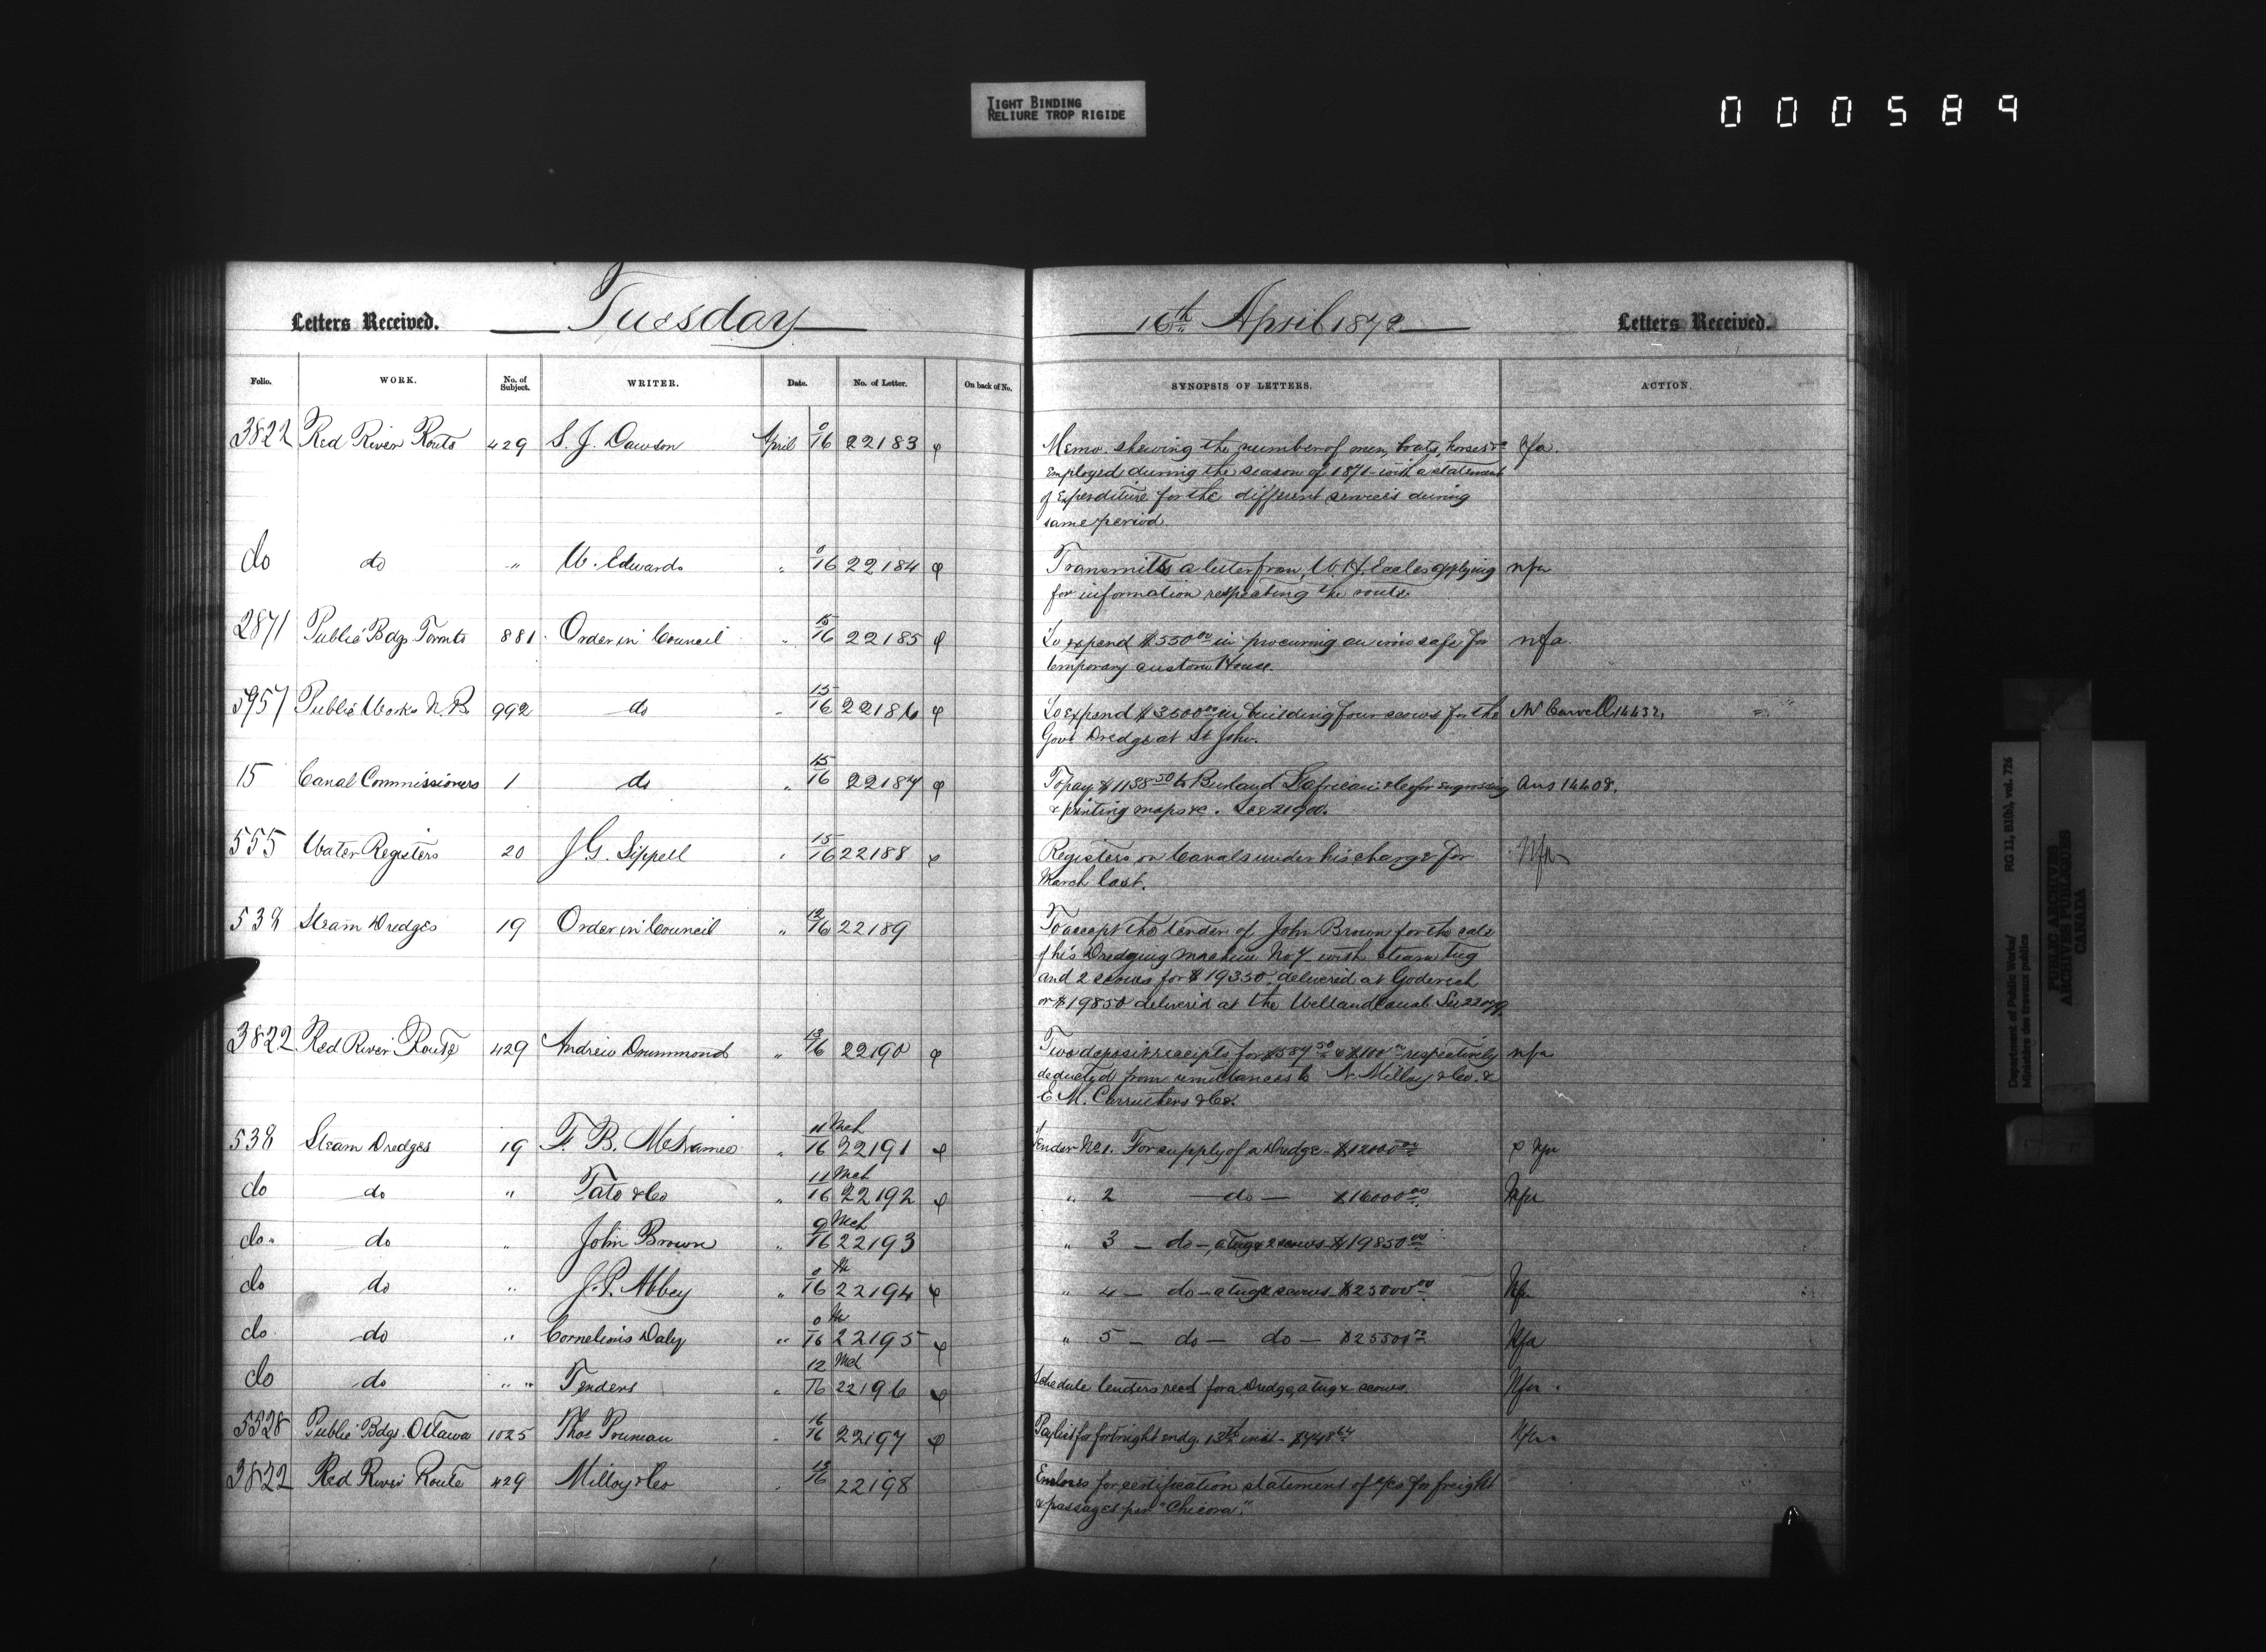 TIGHT BINDING
RELIURE TROP RIGIDE
000589
Letters Received. Tuesday 16th April 1872 Letters Received.
Folio. WORK. No. of Subject. WRITER. Date. No. of Letter. On back of No. SYNOPSIS OF LETTERS. ACTION.
3822 Red River Route 429 S. J. Dawson April 0/16 22183 Memo. shewing the number of men, boats, horses &c nfa.
employed during the season of 1871 with a statement
of Expenditure for the different services during
same period.
do do " W. Edwards " 0/16 22184 Transmitts a letter from W. H. Eccles applying nfa
for information respecting the route.
2871 Public Bdgs Toronto 881 Order in Council " 15/16 22185 To expend $550 00 in procuring an iron safe for nfa.
temporary custom House.
5957 Public Works N.B. 992 do " 15/16 22186 To expend $3500 00 in building four scows for the Mr Carvell 14432,
Govt Dredge at St John.
15 Canal Commissioners 1 do " 15/16 22187 To pay $1138 50 to Burland Lafricain & Co for engrossing Ans 14408.
& printing maps &c. See 21900.
555 Water Registers 20 J G. Sippell " 15/16 22188 Registers on Canals under his charge for Nfa
March last.
538 Steam Dredges 19 Order in Council " 12/16 22189 To accept the tender of John Brown for the sale
of his Dredging machine No 7 with steam tug
and 2 scows for $19350 delivered at Goderich
or $19850 delivered at the Welland Canal. See 22079.
3822 Red River Route 429 Andrew Drummond " 13/16 22190 Two deposit receipts for $587 50 & $100 00 respectively nfa
deducted from remittances to N. Milloy & Co. &
E M. Carruthers & Co.
538 Steam Dredges 19 F. B. McNamee " 11 Mch/16 22191 Tender No 1. For supply of a Dredge $12000 00 Nfa
do do " Tate & Co " 11 Mch/16 22192 " 2 do $16000 00 Nfa
do do " John Brown " 9 Mch/16 22193 " 3 do a tug & 2 scows $19850 00
do do " J. P. Abbey " 0/16 22194 " 4 do a tug & scows $25000 00 Nfa
do do " Cornelius Daly " 0/16 22195 " 5 do do $25500 00 Nfa
do do " " Tenders " 12 Mch/16 22196 Schedule tenders recd for a Dredge, a tug & scows. Nfa.
5528 Public Bdgs. Ottawa 1025 Thos Pruneau " 16/16 22197 Paylist for fortnight endg. 13th inst. $748 64 Nfa
3822 Red River Route 429 Milloy & Co " 13/16 22198 Encloses for certification statement of a/cs for freight
& passages per "Chicora."
Department of Public Works/
Ministère des travaux publics
RG 11, B1(b), vol. 726
PUBLIC ARCHIVES
ARCHIVES PUBLIQUES
CANADA